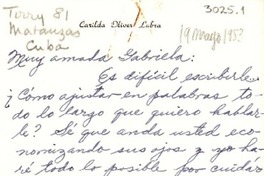 3025.1
Tirry 81
Matanzas
Cuba
Carilda Oliver Labra
19 mayo 1953
Muy amada Gabriela:
Es difícil escribirle.
¿Cómo ajustar en palabras to-
do lo largo que quiero hablar-
le? Sé que anda usted eco-
nomizando sus ojos y yo ha-
ré todo lo posible por cuidár-